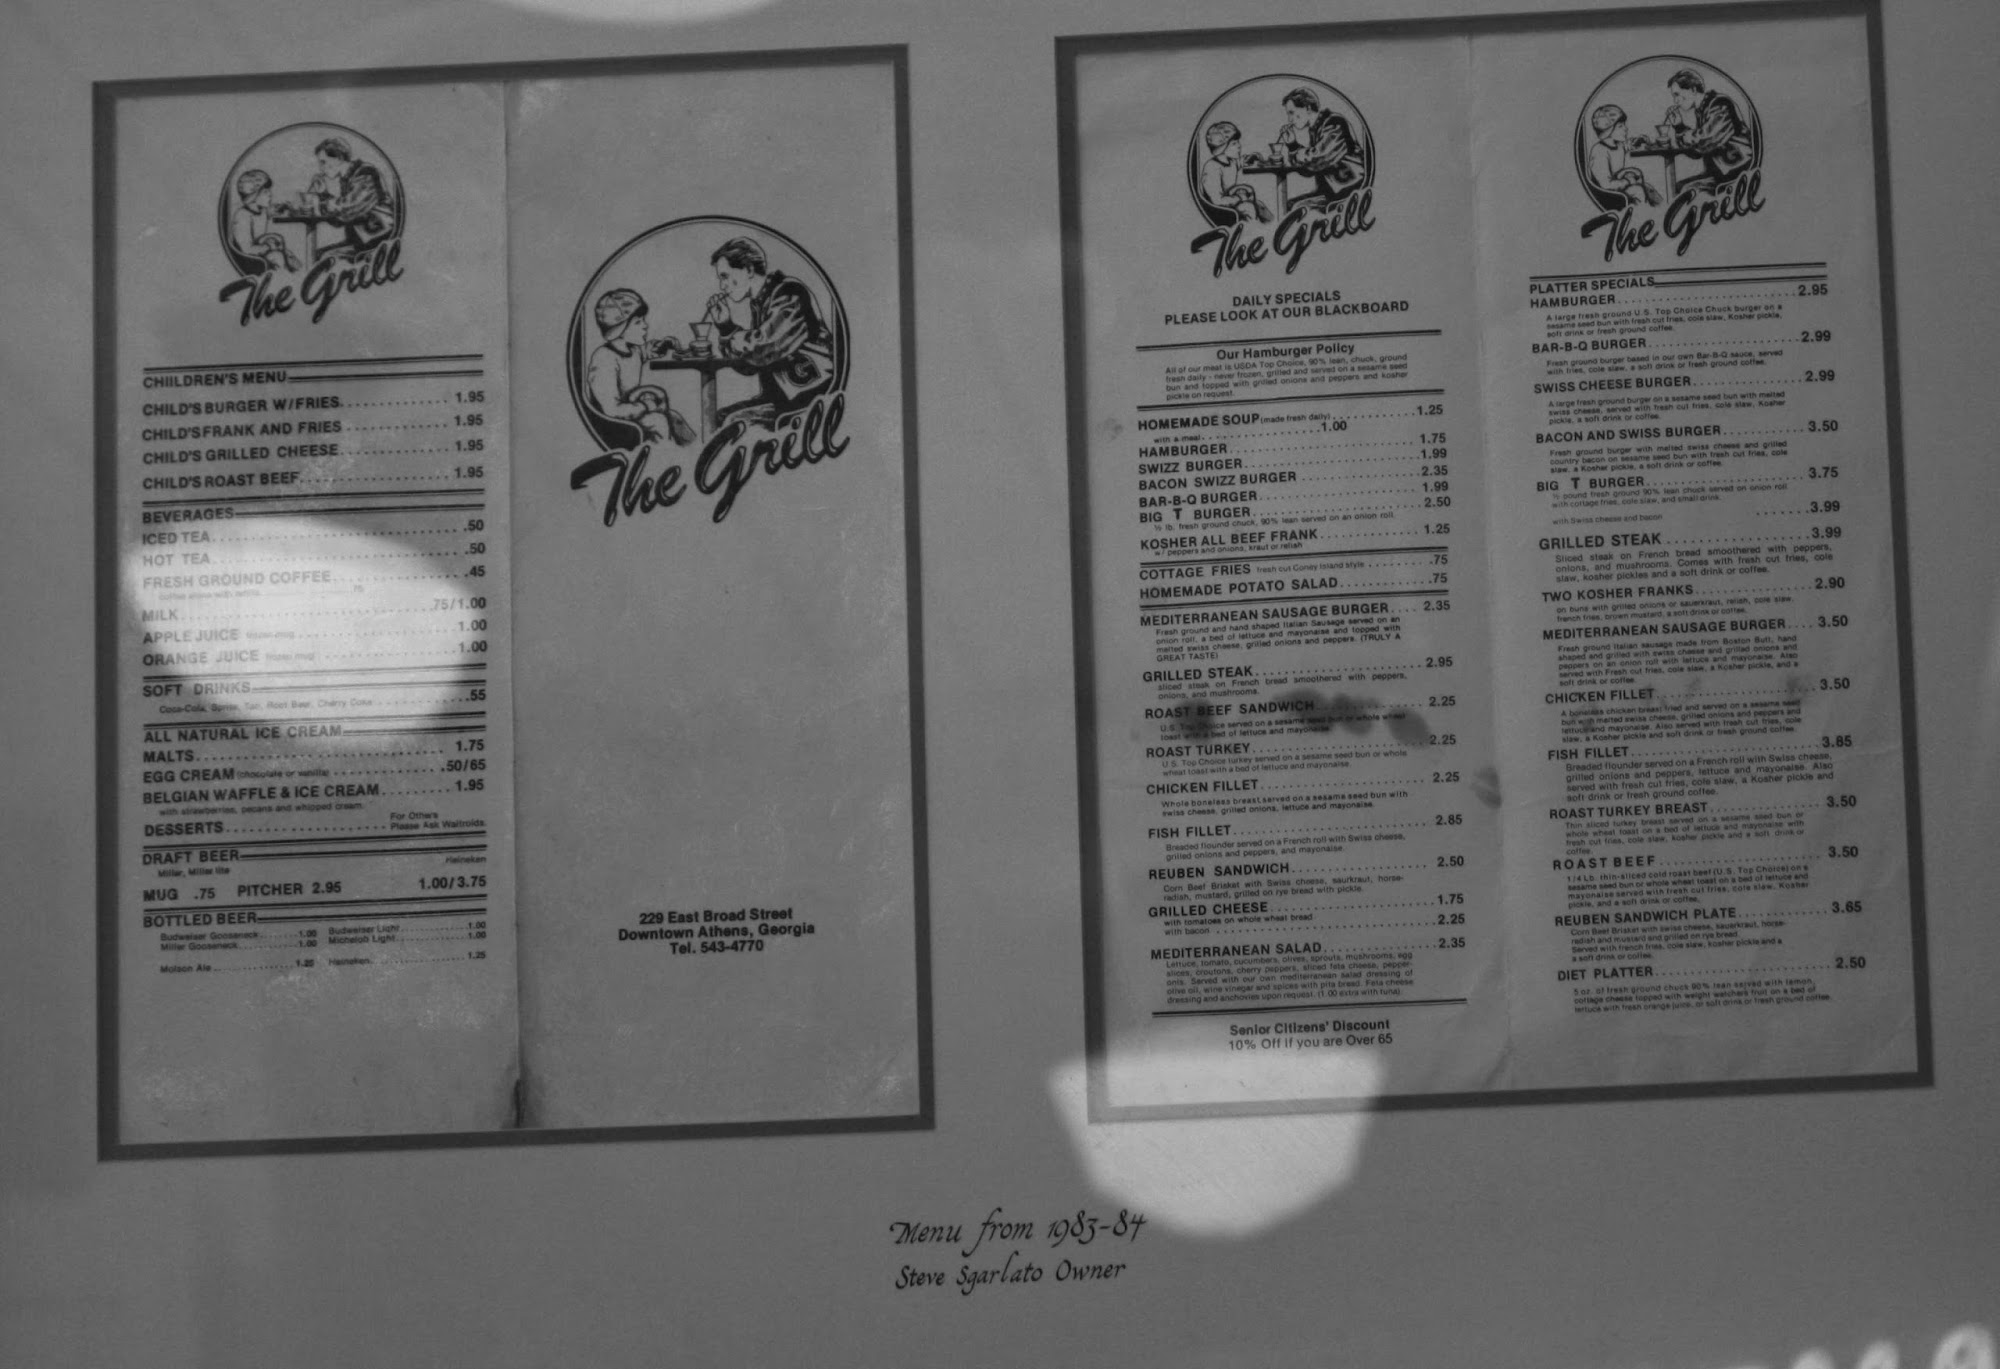 The Grill
CHIILDREN'S MENU
CHILD'S BURGER W/FRIES. 1.95
CHILD'S FRANK AND FRIES 1.95
CHILD'S GRILLED CHEESE. 1.95
CHILD'S ROAST BEEF. 1.95
BEVERAGES
ICED TEA .50
HOT TEA .50
FRESH GROUND COFFEE .45
.75
MILK .75/1.00
APPLE JUICE frozen mug 1.00
ORANGE JUICE frozen mug 1.00
SOFT DRINKS
Coca-Cola, Sprite, Tab, Root Beer, Cherry Coke .55
ALL NATURAL ICE CREAM
MALTS 1.75
EGG CREAM (chocolate or vanilla) .50/65
BELGIAN WAFFLE & ICE CREAM 1.95
with strawberries, pecans and whipped cream.
DESSERTS For Others
Please Ask Waitroids.
DRAFT BEER Heineken
Miller, Miller lite
MUG .75 PITCHER 2.95 1.00/3.75
BOTTLED BEER
Budweiser Gooseneck 1.00 Budweiser Light 1.00
Miller Gooseneck 1.00 Michelob Light 1.00
Molson Ale 1.25 Heineken 1.25
The Grill
229 East Broad Street
Downtown Athens, Georgia
Tel. 543-4770
The Grill
DAILY SPECIALS
PLEASE LOOK AT OUR BLACKBOARD
Our Hamburger Policy
All of our meat is USDA Top Choice, 90% lean, chuck, ground
fresh daily - never frozen, grilled and served on a sesame seed
bun and topped with grilled onions and peppers and kosher
pickle on request.
HOMEMADE SOUP (made fresh daily) 1.25
with a meal 1.00
HAMBURGER 1.75
SWIZZ BURGER 1.99
BACON SWIZZ BURGER 2.35
BAR-B-Q BURGER 1.99
BIG T BURGER 2.50
½ lb. fresh ground chuck, 90% lean served on an onion roll.
KOSHER ALL BEEF FRANK 1.25
w/ peppers and onions, kraut or relish
COTTAGE FRIES fresh cut Coney Island style .75
HOMEMADE POTATO SALAD .75
MEDITERRANEAN SAUSAGE BURGER 2.35
Fresh ground and hand shaped Italian Sausage served on an
onion roll, a bed of lettuce and mayonaise and topped with
malted swiss cheese, grilled onions and peppers. (TRULY A
GREAT TASTE)
GRILLED STEAK 2.95
sliced steak on French bread smoothered with peppers,
onions, and mushrooms.
ROAST BEEF SANDWICH 2.25
U.S. Top Choice served on a sesame seed bun or whole wheat
toast with a bed of lettuce and mayonaise.
ROAST TURKEY 2.25
U.S. Top Choice turkey served on a sesame seed bun or whole
wheat toast with a bed of lettuce and mayonaise.
CHICKEN FILLET 2.25
Whole boneless breast served on a sesame seed bun with
swiss cheese, grilled onions, lettuce and mayonaise.
FISH FILLET 2.85
Breaded flounder served on a French roll with Swiss cheese,
grilled onions and peppers, and mayonaise.
REUBEN SANDWICH 2.50
Corn Beef Brisket with Swiss cheese, saurkraut, horse-
radish, mustard, grilled on rye bread with pickle.
GRILLED CHEESE 1.75
with tomatoes on whole wheat bread
with bacon 2.25
MEDITERRANEAN SALAD 2.35
Lettuce, tomato, cucumbers, olives, sprouts, mushrooms, egg
slices, croutons, cherry peppers, sliced feta cheese, pepper-
onis. Served with our own mediterranean salad dressing of
olive oil, wine vinegar and spices with pita bread. Feta cheese
dressing and anchovies upon request. (1.00 extra with tuna)
Senior Citizens' Discount
10% Off if you are Over 65
The Grill
PLATTER SPECIALS
HAMBURGER 2.95
A large fresh ground U.S. Top Choice Chuck burger on a
sesame seed bun with fresh cut fries, cole slaw, Kosher pickle,
soft drink or fresh ground coffee.
BAR-B-Q BURGER 2.99
Fresh ground burger basted in our own Bar-B-Q sauce, served
with fries, cole slaw, a soft drink or fresh ground coffee.
SWISS CHEESE BURGER 2.99
A large fresh ground burger on a sesame seed bun with melted
swiss cheese, served with fresh cut fries, cole slaw, Kosher
pickle, a soft drink or coffee.
BACON AND SWISS BURGER 3.50
Fresh ground burger with malted swiss cheese and grilled
country bacon on sesame seed bun with fresh cut fries, cole
slaw, a Kosher pickle, a soft drink or coffee.
BIG T BURGER 3.75
½ pound fresh ground 90% lean chuck served on onion roll
with cottage fries, cole slaw, and small drink.
with Swiss cheese and bacon 3.99
GRILLED STEAK 3.99
Sliced steak on French bread smoothered with peppers,
onions, and mushrooms. Comes with fresh cut fries, cole
slaw, kosher pickles and a soft drink or coffee.
TWO KOSHER FRANKS 2.90
on buns with grilled onions or sauerkraut, relish, cole slaw,
french fries, brown mustard, a soft drink or coffee.
MEDITERRANEAN SAUSAGE BURGER 3.50
Fresh ground Italian sausage made from Boston Butt, hand
shaped and grilled with swiss cheese and grilled onions and
peppers on an onion roll with lettuce and mayonaise. Also
served with Fresh cut fries, cole slaw, a Kosher pickle, and a
soft drink or coffee.
CHICKEN FILLET 3.50
A boneless chicken breast fried and served on a sesame seed
bun with malted swiss cheese, grilled onions and peppers and
lettuce and mayonaise. Also served with fresh cut fries, cole
slaw, a Kosher pickle and soft drink or fresh ground coffee.
FISH FILLET 3.85
Breaded flounder served on a French roll with Swiss cheese,
grilled onions and peppers, lettuce and mayonaise. Also
served with fresh cut fries, cole slaw, a Kosher pickle and
soft drink or fresh ground coffee.
ROAST TURKEY BREAST 3.50
Thin sliced turkey breast served on a sesame seed bun or
whole wheat toast on a bed of lettuce and mayonaise with
fresh cut fries, cole slaw, kosher pickle and a soft drink or
coffee.
ROAST BEEF 3.50
1/4 Lb. thin-sliced cold roast beef (U.S. Top Choice) on a
sesame seed bun or whole wheat toast on a bed of lettuce and
mayonaise served with fresh cut fries, cole slaw, Kosher
pickle, and a soft drink or coffee.
REUBEN SANDWICH PLATE 3.65
Corn Beef Brisket with swiss cheese, sauerkraut, horse-
radish and mustard and grilled on rye bread.
Served with french fries, cole slaw, kosher pickle and a
a soft drink or coffee.
DIET PLATTER 2.50
5 oz. of fresh ground chuck 90% lean served with lemon,
cottage cheese topped with weight watchers fruit on a bed of
lettuce with fresh orange juice, or soft drink or fresh ground coffee.
Menu from 1983-84
Steve Sgarlato Owner